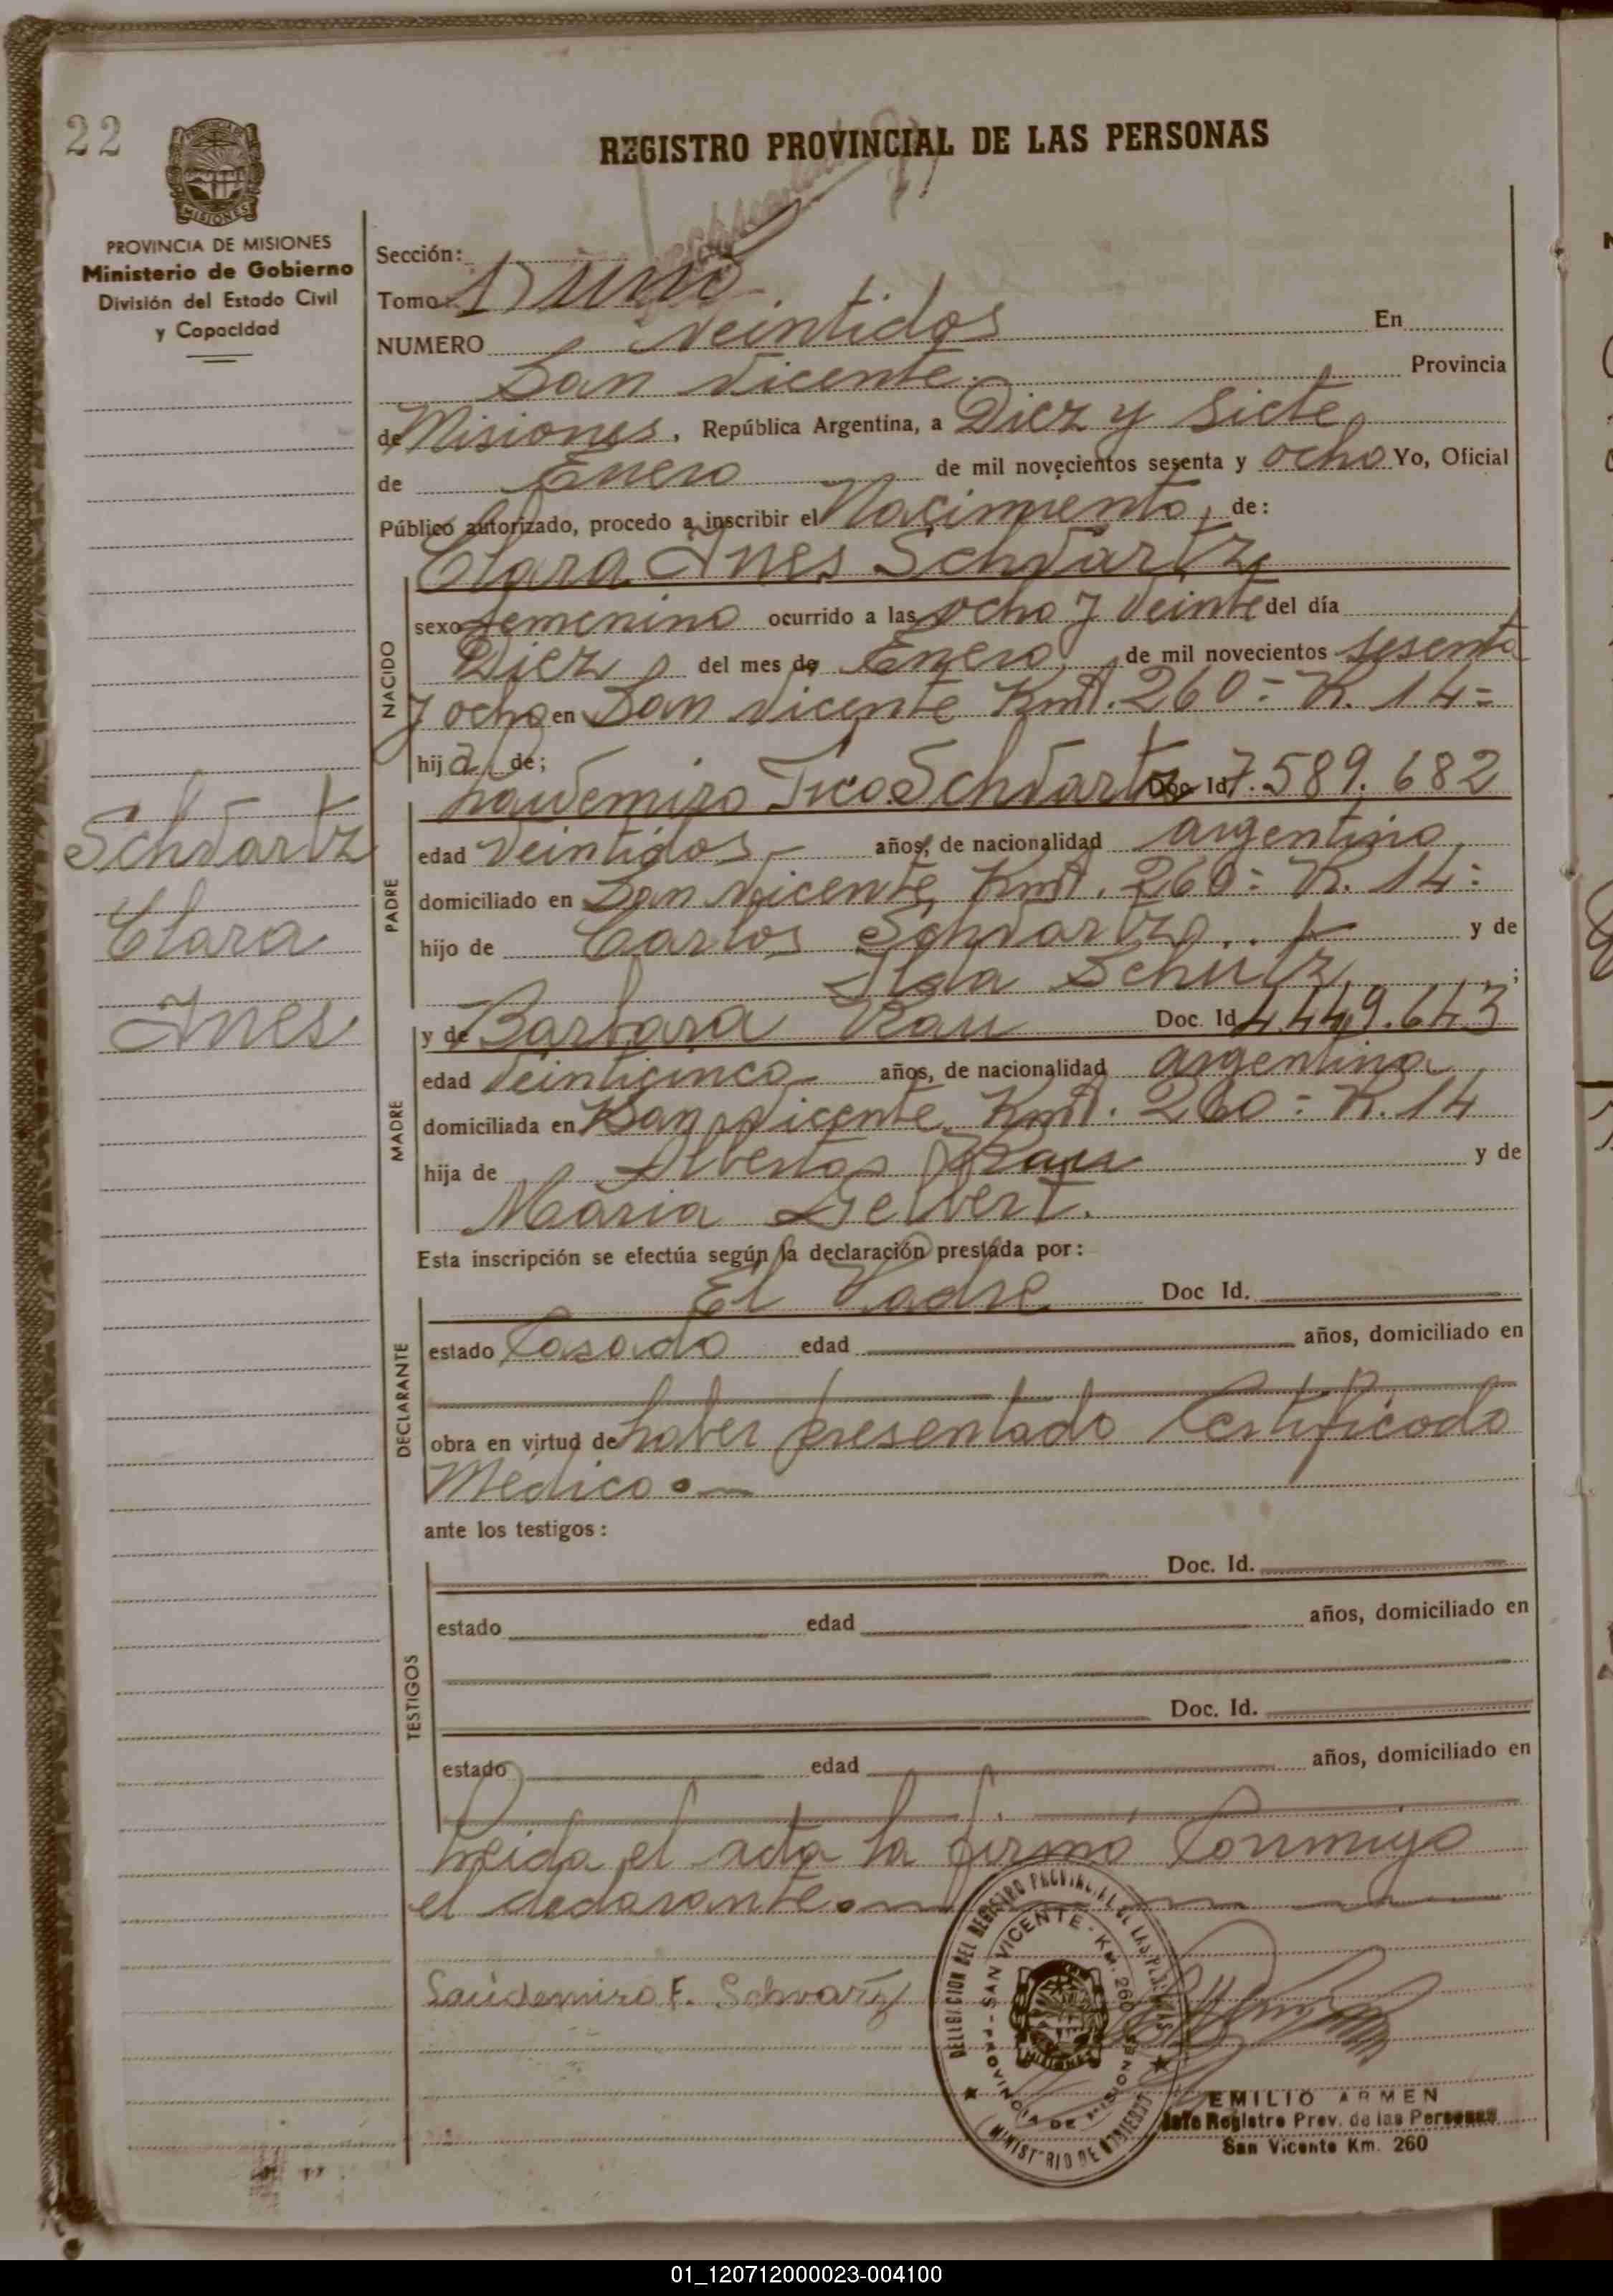 22
REGISTRO PROVINCIAL DE LAS PERSONAS
PROVINCIA DE MISIONES
Ministerio de Gobierno
División del Estado Civil
y Capacidad
Sección:
Tomo: 1) uno
NUMERO veintidos En
San Vicente Provincia
de Misiones, República Argentina, a Diez y siete
de Enero de mil novecientos sesenta y ocho Yo, Oficial
Público autorizado, procedo a inscribir el Nacimiento, de:
Clara Ines Schvartz
sexo femenino ocurrido a las ocho y veinte del día
Diez del mes de Enero de mil novecientos sesenta
y ocho en San Vicente Kmt. 260= R. 14=
hija de;
NACIDO
Schvartz Doc Id 7.589.682
edad veintidos años, de nacionalidad argentino
domiciliado en San Vicente Kmt. 260= R. 14=
hijo de Carlos Schvartz y de
Schutz ;
PADRE
y de Barbara Rau Doc. Id 4.449.643
edad veinticinco años, de nacionalidad argentina
domiciliada en San Vicente Kmt. 260= R. 14
hija de Albertos Rau y de
Maria Gelbert.
MADRE
Esta inscripción se efectúa según la declaración prestada por:
El Padre Doc Id.
estado Casado edad años, domiciliado en
obra en virtud de haber presentado Certificado
Medico
DECLARANTE
ante los testigos:
Doc. Id.
estado edad años, domiciliado en
Doc. Id.
estado edad años, domiciliado en
TESTIGOS
Leida el acta la firmó Conmigo
el declarante
Schvartz
Clara
Ines
Schvartz
DELEGACION DEL REGISTRO PROVINCIAL DE LAS PERSONAS
SAN VICENTE - KM. 260
PROVINCIA DE MISIONES
MINISTERIO DE GOBIERNO
MISIONES
EMILIO ARMEN
Jefe Registro Prov. de las Personas
San Vicente Km. 260
01_120712000023-004100